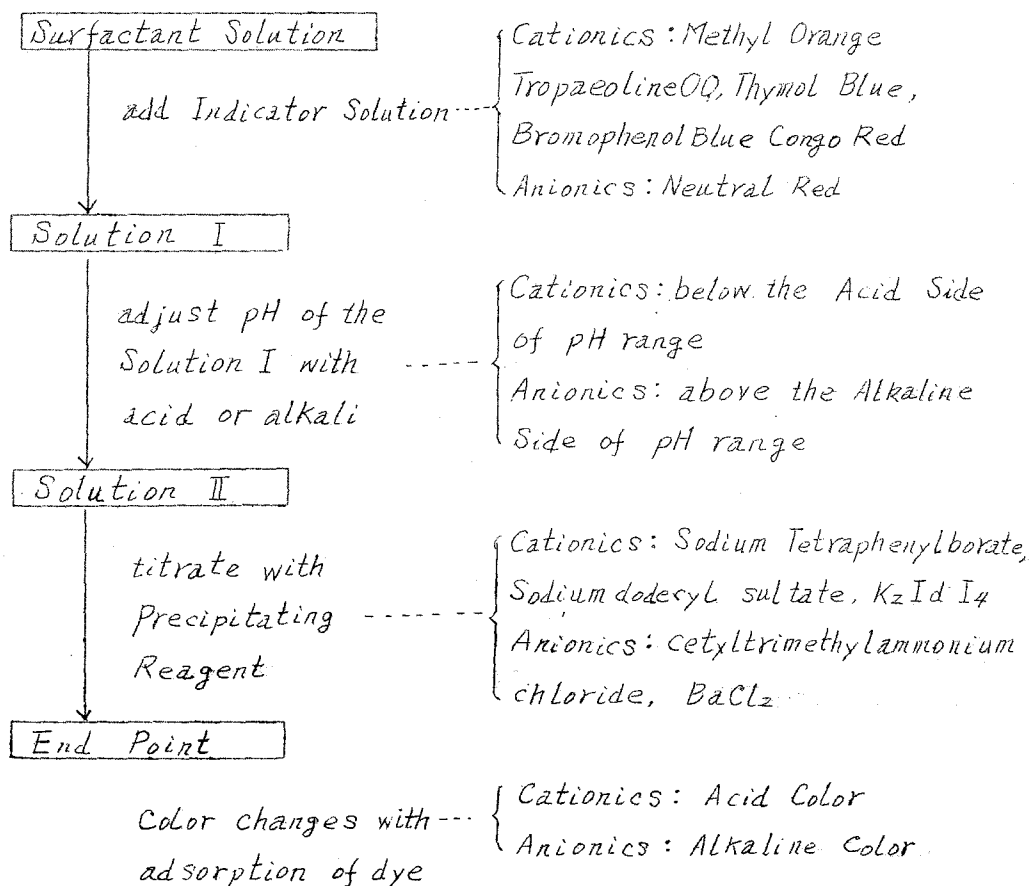 Surfactant Solution
add Indicator Solution
Cationics: Methyl Orange
Tropaeoline OO, Thymol Blue,
Bromophenol Blue Congo Red
Anionics: Neutral Red
Solution I
adjust pH of the
Solution I with
acid or alkali
Cationics: below the Acid Side
of pH range
Anionics: above the Alkaline
Side of pH range
Solution II
titrate with
Precipitating
Reagent
Cationics: Sodium Tetraphenylborate,
Sodium dodecyl sultate, K2Id I4
Anionics: Cetyltrimethylammonium
chloride, BaCl2
End Point
Color changes with
adsorption of dye
Cationics: Acid Color
Anionics: Alkaline Color